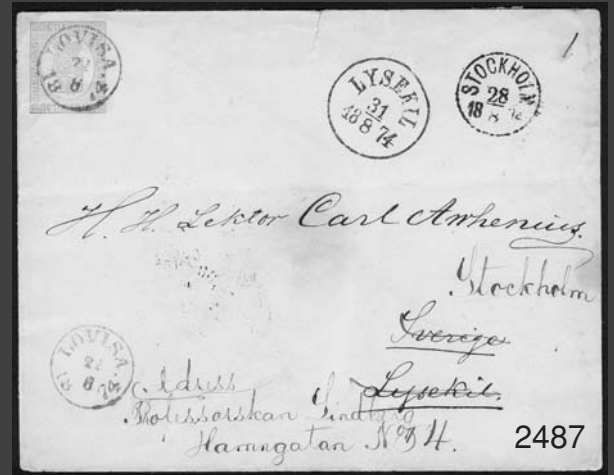 LOVISA
18 8 74
LYSEKIL
31
18 8 74
STOCKHOLM
28
18 8
1
H. H. Lektor Carl Arrhenius.
Stockholm
Sverige
Lysekil.
LOVISA
18 8 74
Adress
Professorskan Lindberg
Hamngatan No 4.
2487